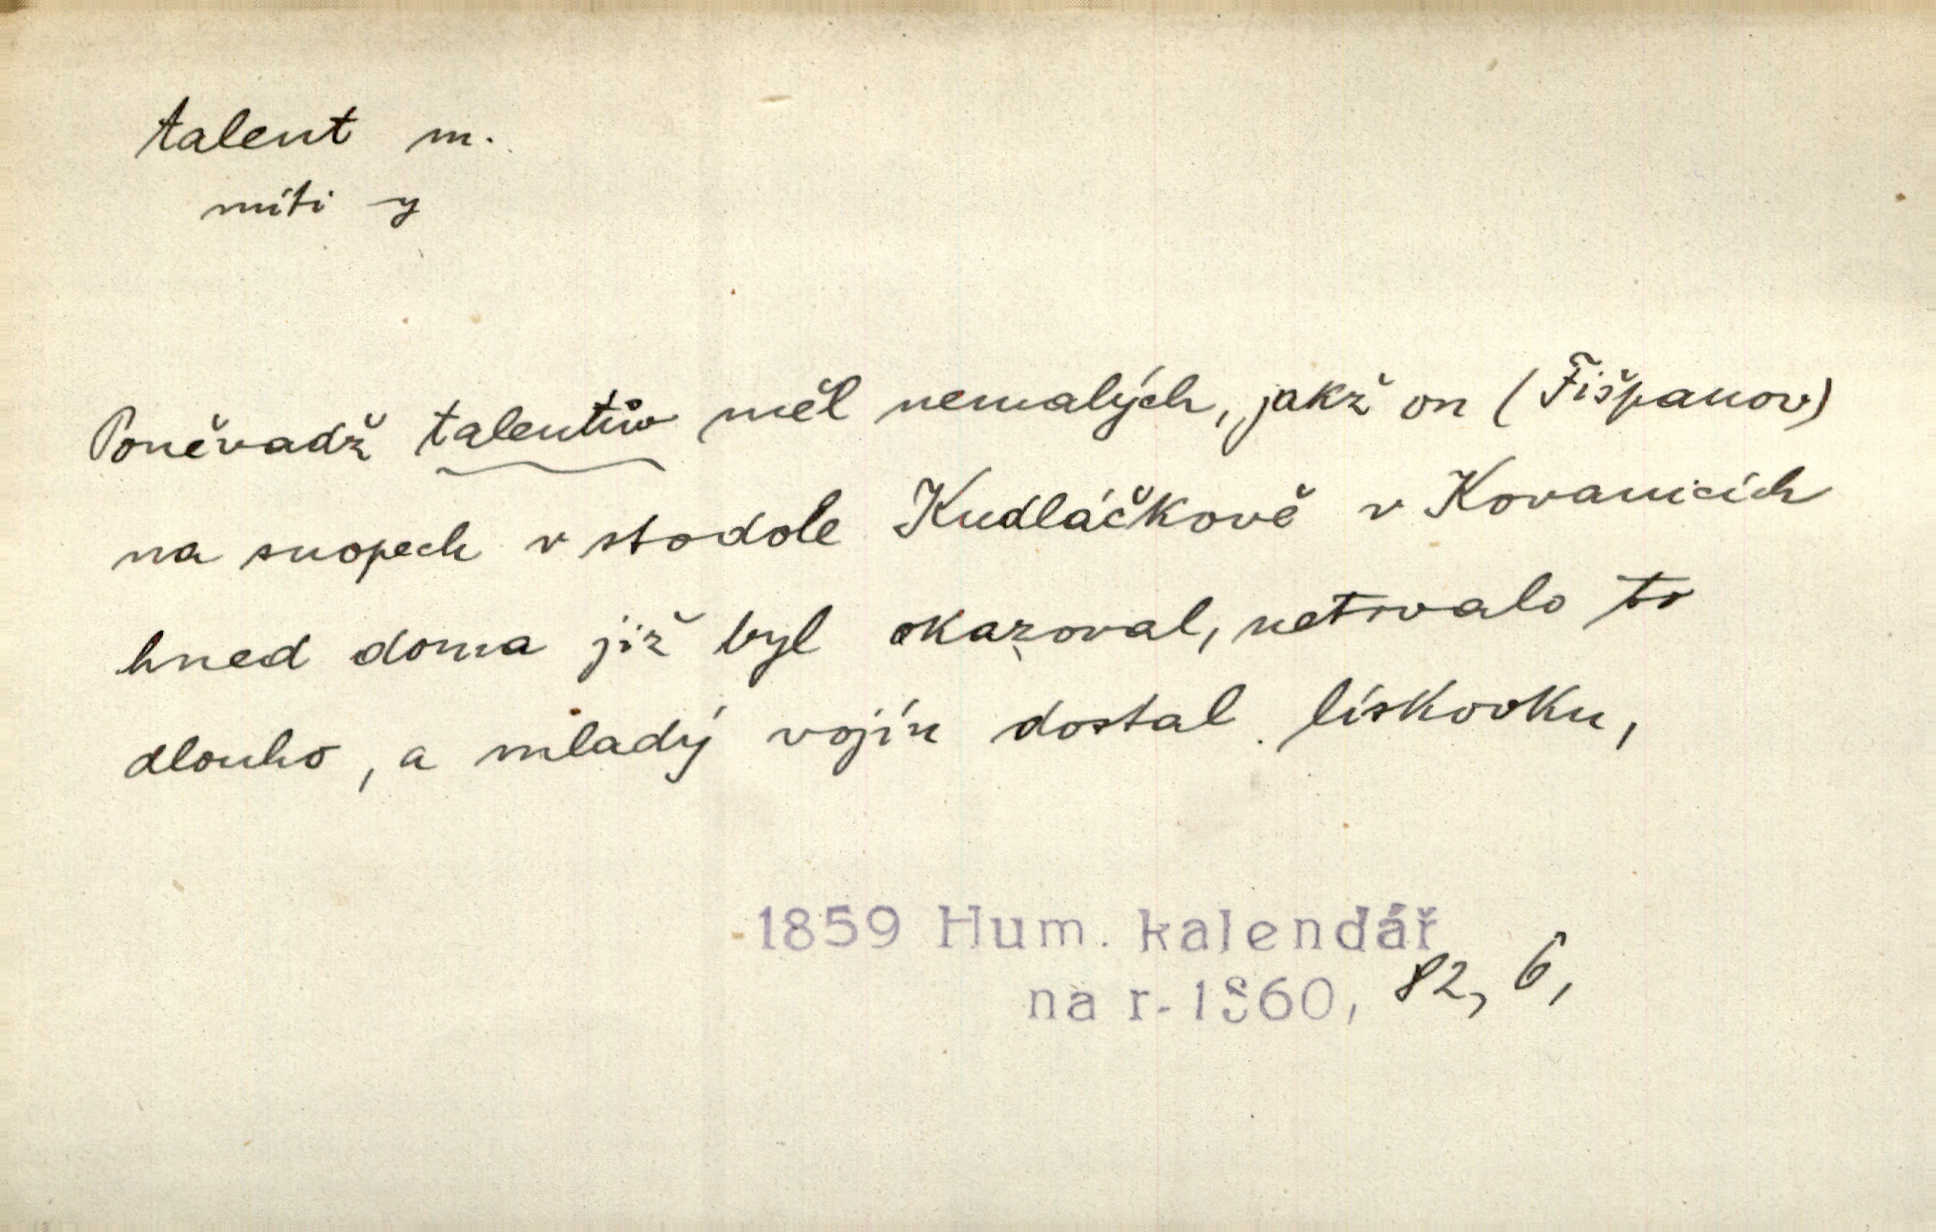 talent m.
míti -y
Poněvadž talentův měl nemalých, jakž on (Fišpanov)
na snopech v stodole Kudláčkově v Kovanicích
hned doma již byl okazoval, netrvalo to
dlouho, a mladý vojín dostal lískovku,
1859 Hum. kalendář
na r. 1860, 82, 6,